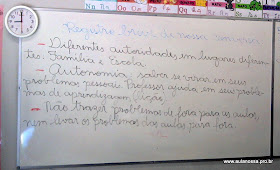 Nn Oo Pp Qq Rr
Registro oral da nossa conversa
- Diferentes autoridades em lugares diferen-
tes. Família e Escola.
- Autonomia, saber se virar em seus
problemas pessoais. Professor ajuda em seus proble-
mas de aprendizagem (lição).
- Não trazer problemas de fora para as aulas,
nem levar os problemas das aulas para fora.
www.aulanossa.pro.br